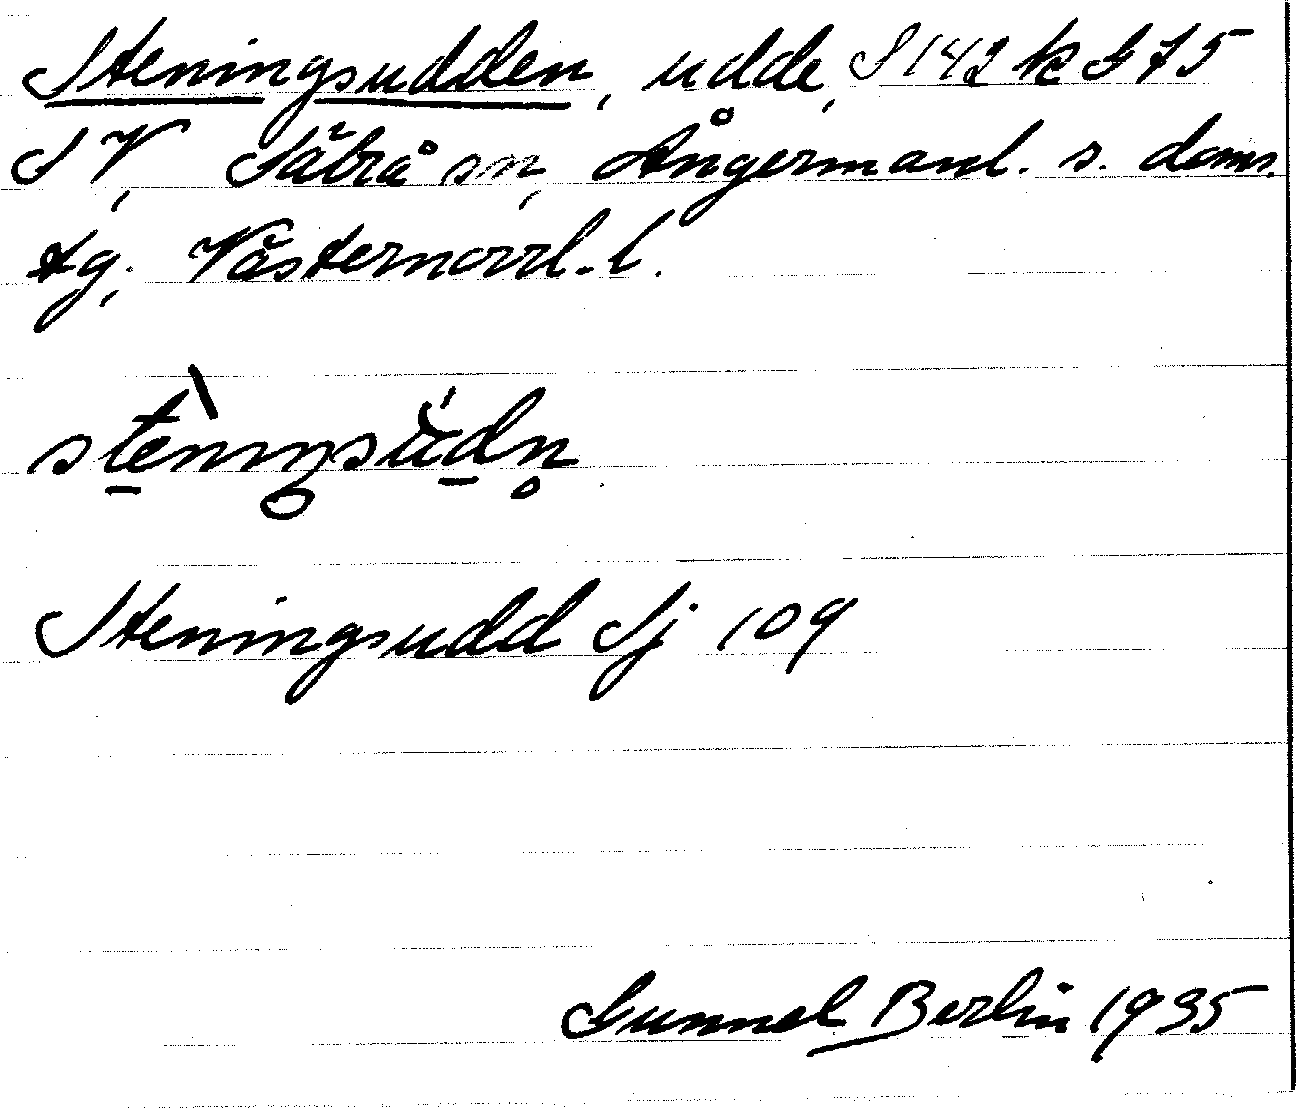 Steningsudden, udde, S 142 k G 75
SV, Säbrå sn, Ångermanl. s. doms.
tg, Västernorrl. l.
Steningsudd Sj 109
Gunnel Berlin 1935